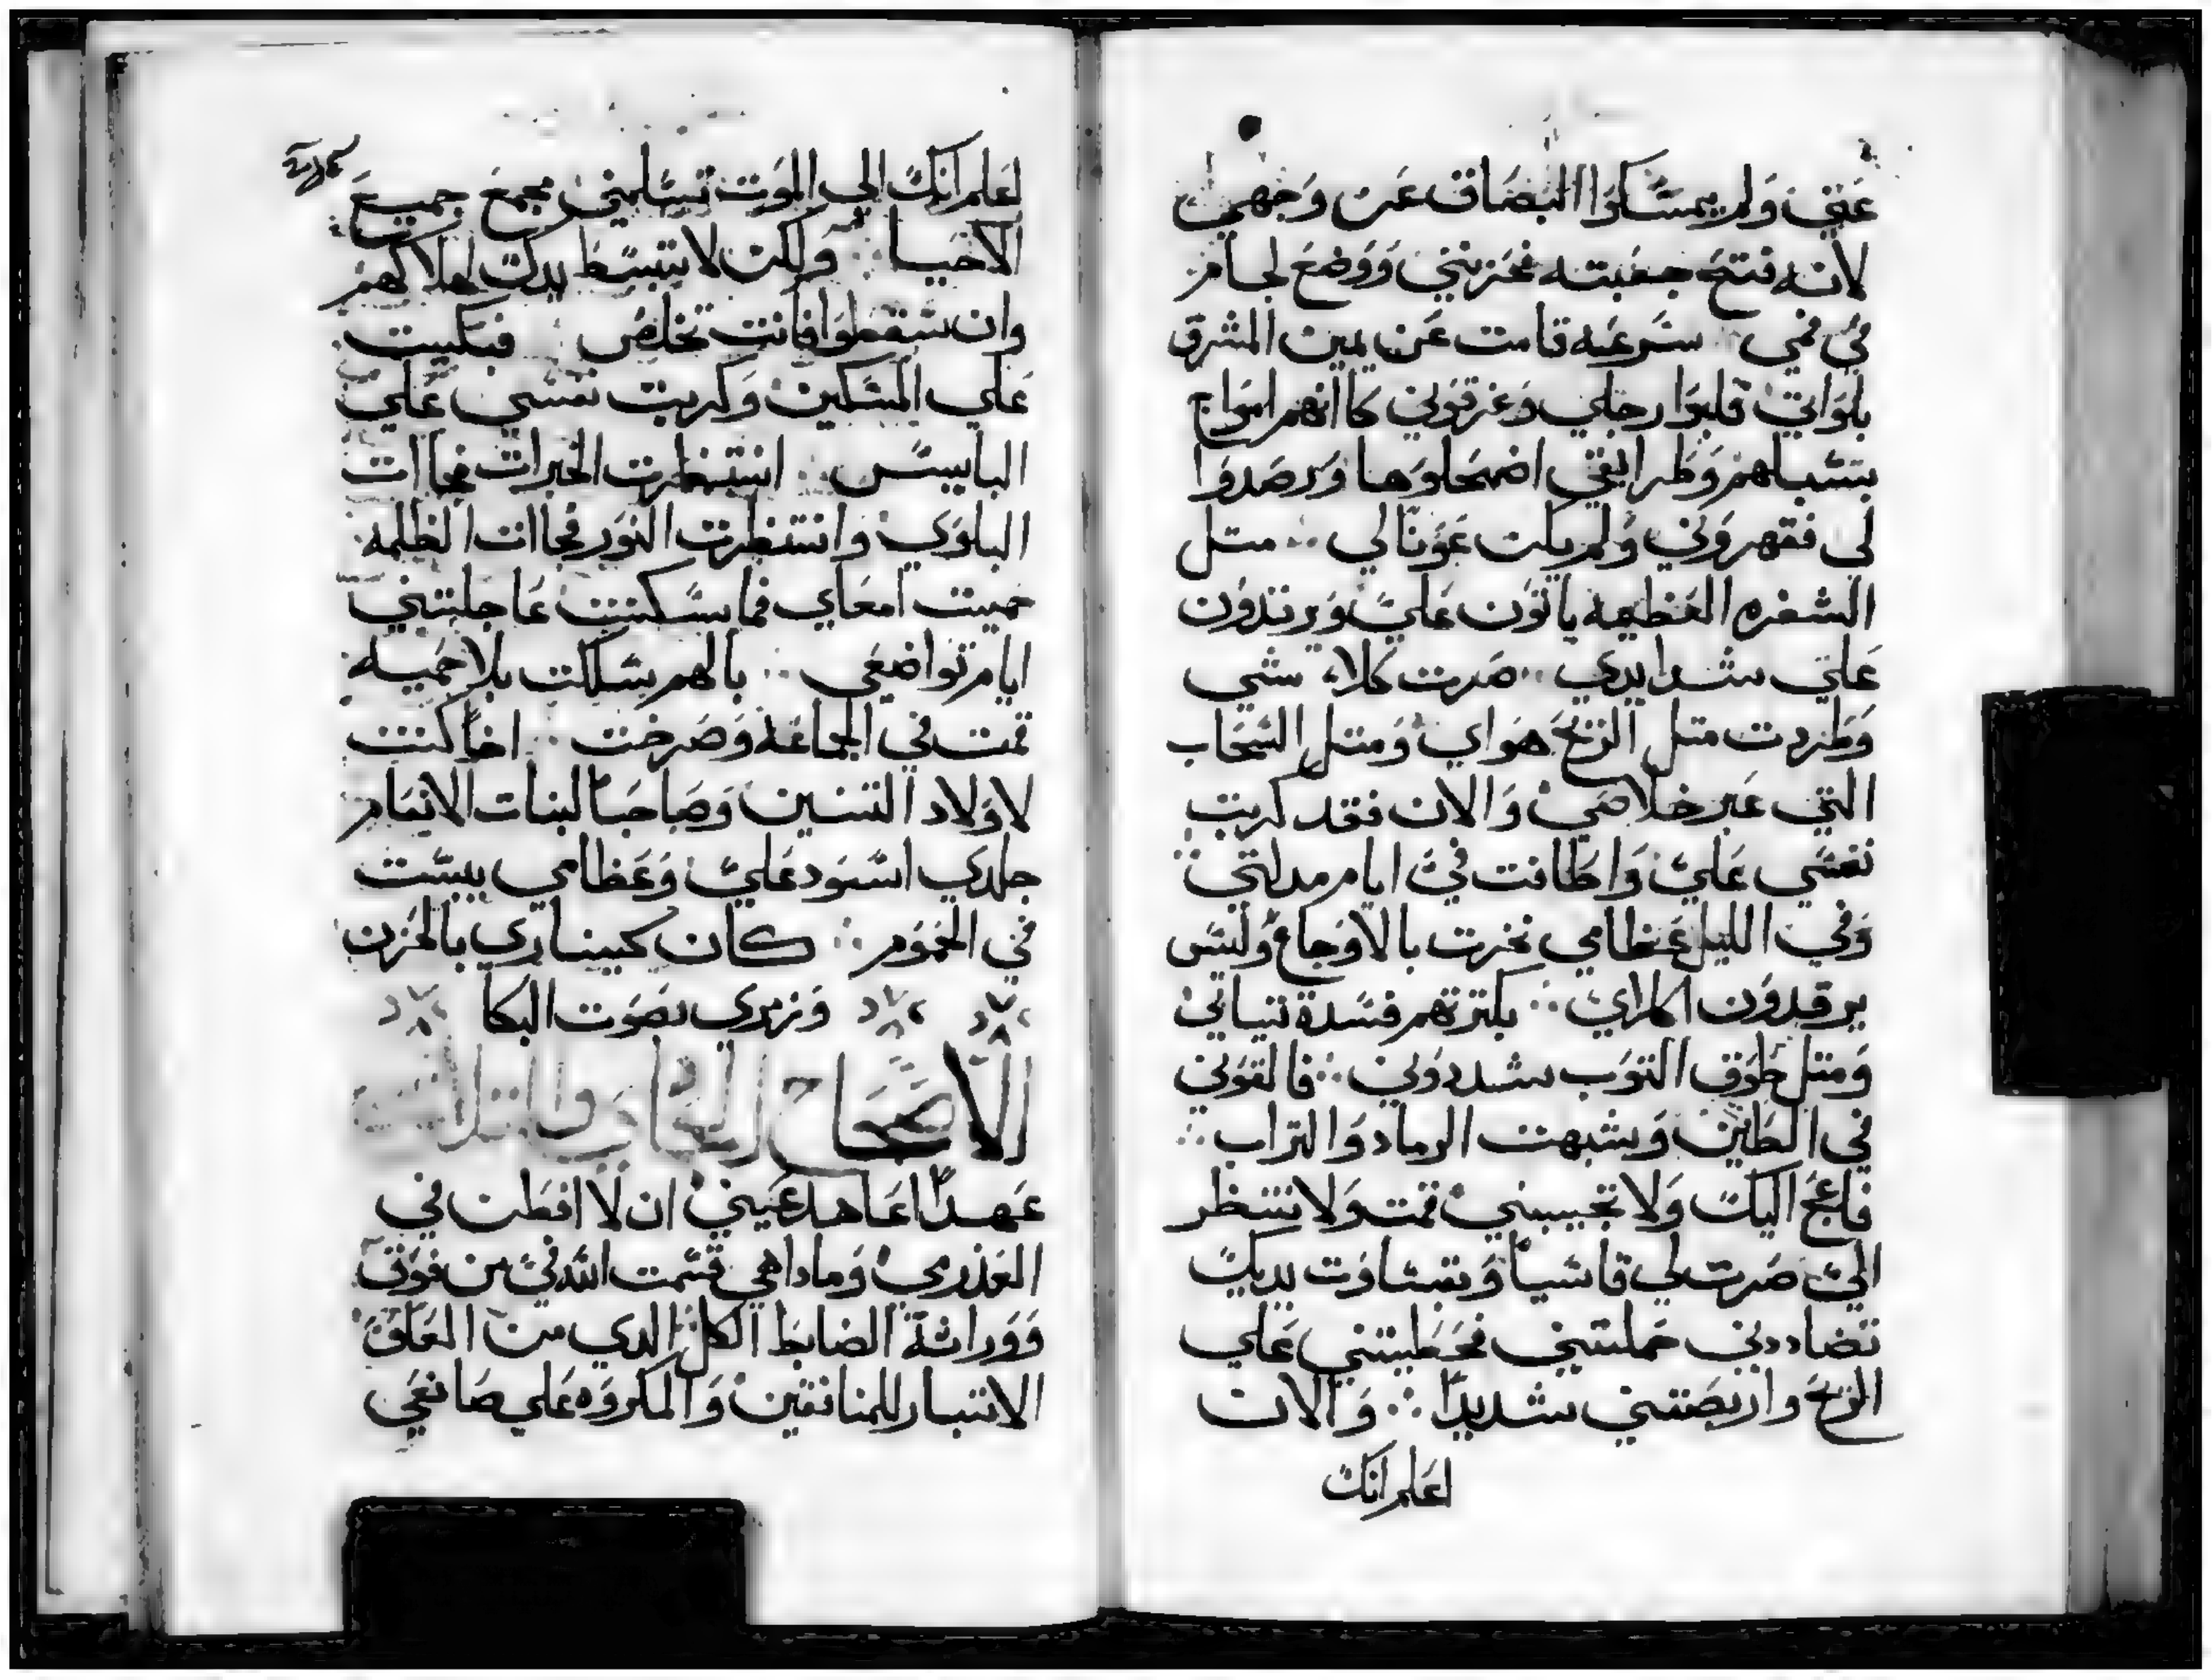 عني ولم يمسكوا البصاق عن وجهي
لانه فتح جعبته فحزبني ووضع لجام
في فمي سرعه قامت عن يمين المشرق
بلواتي قلبوا رجلي وغرقوني كاانهم امواج
بتسبلهم وطرايقي اضمحلوها ورصدوا
لي فقهروني ولم يكن عونا لي ∴ متل
الشفره العظيمه ياتون علي ويرتدون
علي شدايدي ∴ صرت كلا شي
وطردت متل الريح هواي ومتل السحاب
التي عبر خلاصي والان فقد كربت
نفسي علي واطافت في ايام مدلتي
وفي الليل عظامي نخرت بالاوجاع وليس
يرقدون اكلراي ∴ بكترتهم فسدة تيابي
ومتل طوق التوب شددوني ∴ فالقوني
في الطين وشبهت الرماد والتراب ∴
فاعج اليك ولا تجيبني قمت ولا تنظر
الي صرت لي قاسيا وبقساوت يديك
تضاددني حملتني فحطيتني علي
الريح واربصتني شديدا ∴ والان
اعلم انك
اعلم انك الي الموت تسلمني مجمع جميع
الاحيا ∴ ولكن لا تبسط يدك لهلاكهم
وان سقطوا فانت تخلص فبكيت
علي المسكين وكربت نفسي علي
البايس ∴ انتظرت الخيرات فجاات
البلوي وانتظرت النور فجاات الظلمه
حميت امعاي فما سكنت عاجلتني
ايام تواضعي ∴ بالهم سلكت بلا حميه
قمت في الجماعه وصرخت ∴ اخا كنت
لاولاد التنين وصاحبا لبنات الانعام
جلدي اسود علي وعظامي يبست
في الحموم ∴ كان كيناري بالحزن
ومزمري بصوت البكا
الاصحاح الحادي والتلاتين
عهدا اعاهد عيني ان لا افطن في
العذري وماداهي قسمت الله في من فوق
ووراثة الضابط الكل الدي من العلا
الانتبار للمنافقين والمكروه علي صانعي